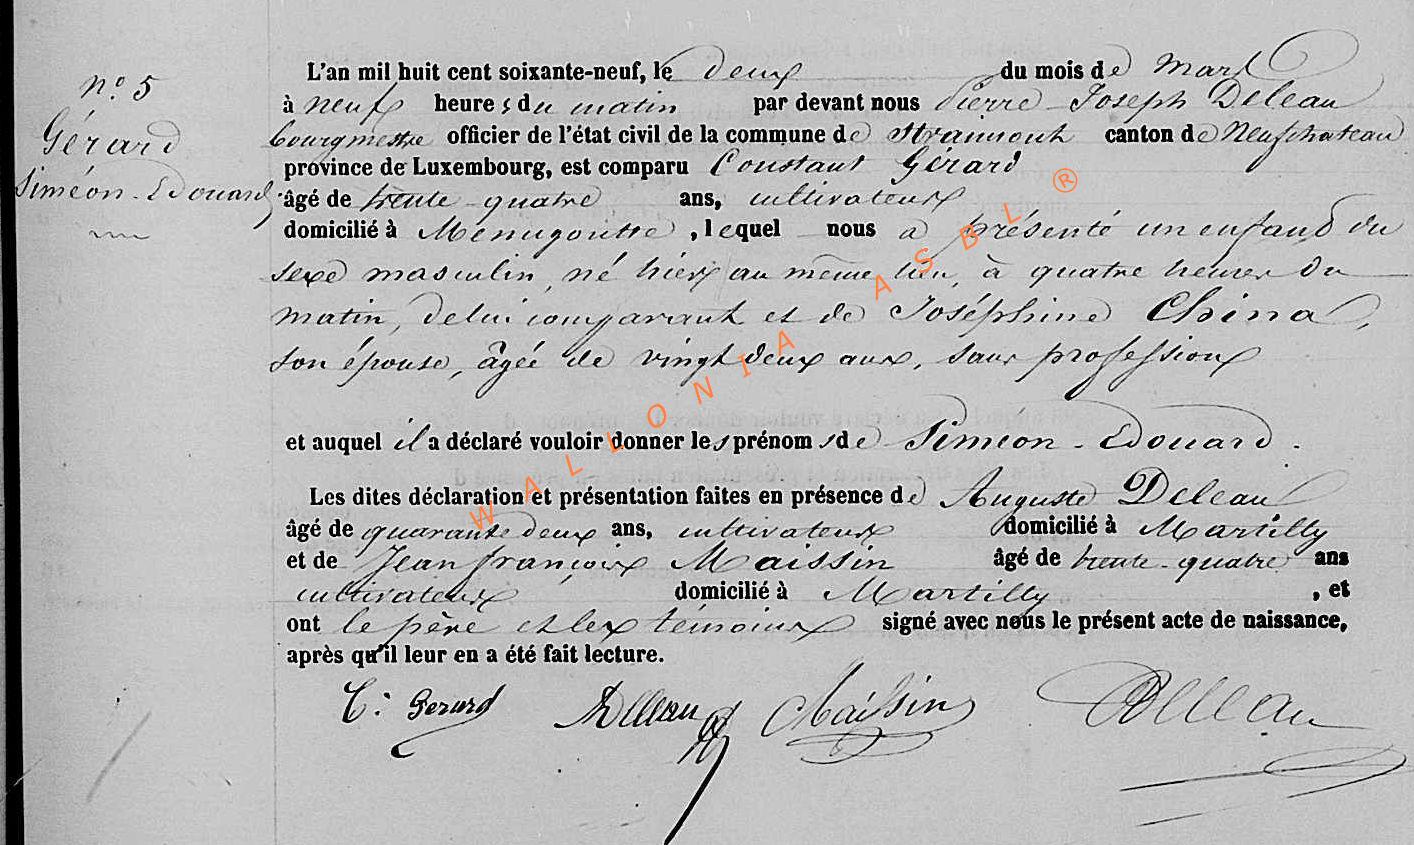 n° 5
Gérard
Siméon-Edouard
L'an mil huit cent soixante-neuf, le deux du mois de Mars
à neuf heures du matin par devant nous Pierre Joseph Deleau
bourgmestre officier de l'état civil de la commune de Straimont canton de Neufchateau
province de Luxembourg, est comparu Constant Gérard
âgé de trente-quatre ans, cultivateur
domicilié à Menugoutte, lequel nous a présenté un enfant du
sexe masculin, né hier au même lieu, à quatre heures du
matin, de lui comparant et de Joséphine China,
son épouse, âgée de vingt deux ans, sans profession
et auquel il a déclaré vouloir donner les prénoms de Siméon-Edouard.
Les dites déclaration et présentation faites en présence de Auguste Deleau
âgé de quarante deux ans, cultivateur domicilié à Martilly
et de Jean françois Maissin âgé de trente-quatre ans
cultivateur domicilié à Martilly, et
ont le père et les témoins signé avec nous le présent acte de naissance,
après qu'il leur en a été fait lecture.
C. Gerard ADeleau Maissin Deleau
WALLONIA ASBL ®